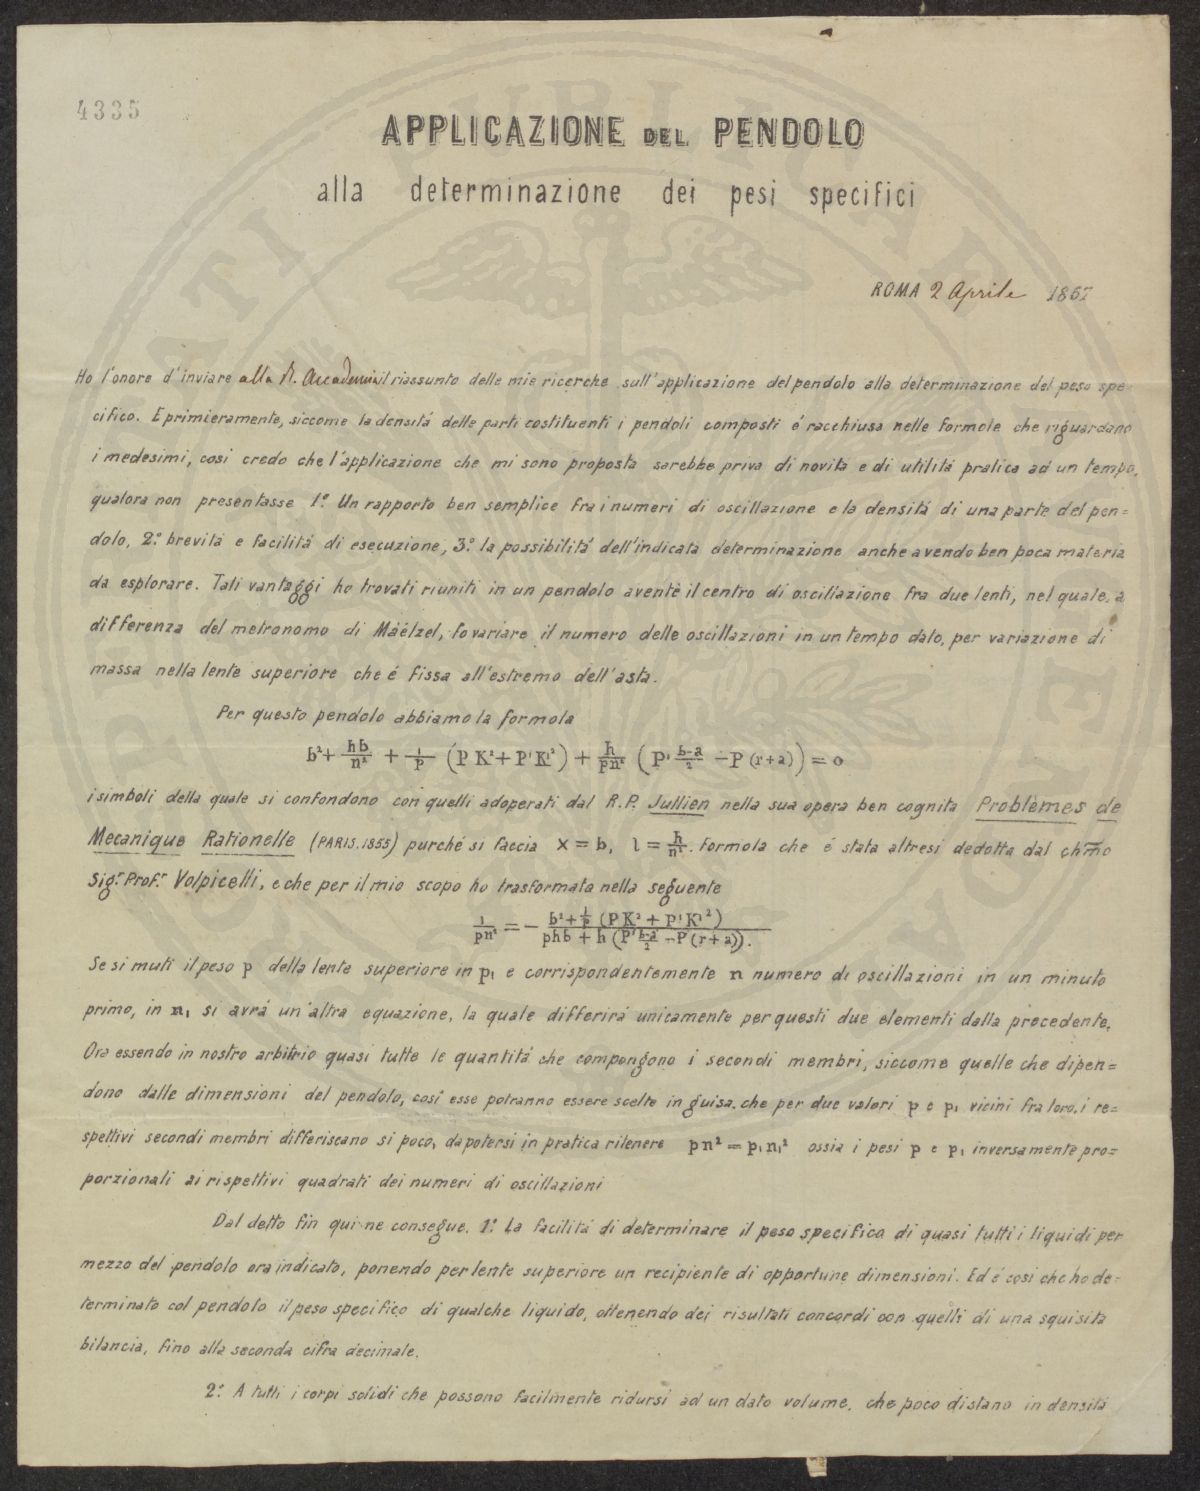 4335
APPLICAZIONE DEL PENDOLO
alla determinazione dei pesi specifici
ROMA 2 Aprile 1867
Ho l'onore d'inviare alla R. Accademia il riassunto delle mie ricerche sull'applicazione del pendolo alla determinazione del peso spe=
cifico. E primieramente, siccome la densitá delle parti costituenti i pendoli composti é racchiusa nelle formole che riguardano
i medesimi, cosi credo che l'applicazione che mi sono proposta sarebbe priva di novita e di utilitá pratica ad un tempo,
qualora non presentasse 1.° Un rapporto ben semplice fra i numeri di oscillazione e la densitá di una parte del pen=
dolo, 2.° brevitá e facilitá di esecuzione, 3.° la possibilitá dell'indicata determinazione anche avendo ben poca materia
da esplorare. Tali vantaggi ho trovati riuniti in un pendolo avente il centro di oscillazione fra due lenti, nel quale, a
differenza del metronomo di Mäelzel, fo variare il numero delle oscillazioni in un tempo dato, per variazione di
massa nella lente superiore che é fissa all'estremo dell'asta.
Per questo pendolo abbiamo la formola
b² + hb/n² + 1/p (P K² + P' K'²) + h/pn² (P' b-a/2 - P (r+a)) = 0
i simboli della quale si confondono con quelli adoperati dal R.P. Jullien nella sua opera ben cognita Problèmes de
Mecanique Rationelle (PARIS. 1855) purché si faccia x = b, l = h/n². formola che é stata altresi dedotta dal ch̅mo
Sig.r Prof.r Volpicelli, e che per il mio scopo ho trasformata nella seguente
1/pn² = - b² + 1/p (P K² + P' K'²) / phb + h (P' b-a/2 - P (r+a)).
Se si muti il peso p della lente superiore in p₁ e corrispondentemente n numero di oscillazioni in un minuto
primo, in n₁ si avrá un'altra equazione, la quale differirá unicamente per questi due elementi dalla precedente.
Ora essendo in nostro arbitrio quasi tutte le quantitá che compongono i secondi membri, siccome quelle che dipen=
dono dalle dimensioni del pendolo, cosí esse potranno essere scelte in guisa, che per due valori p e p₁ vicini fra loro, i re=
spettivi secondi membri differiscano si poco, da potersi in pratica ritenere pn² = p₁n₁² ossia i pesi p e p₁ inversamente pro=
porzionali ai rispettivi quadrati dei numeri di oscillazioni
Dal detto fin qui ne consegue. 1.° La facilitá di determinare il peso specifico di quasi tutti i liquidi per
mezzo del pendolo ora indicato, ponendo per lente superiore un recipiente di opportune dimensioni. Ed é cosi che ho de=
terminato col pendolo il peso specifico di qualche liquido, ottenendo dei risultati concordi con quelli di una squisita
bilancia, fino alla seconda cifra decimale.
2.° A tutti i corpi solidi che possono facilmente ridursi ad un dato volume, che poco distano in densitá